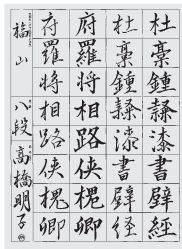 杜稾鍾隷漆書壁經
杜稾鍾隷漆書壁経
府羅將相路侠槐卿
府羅将相路侠槐卿
福山 八段 高橋明子